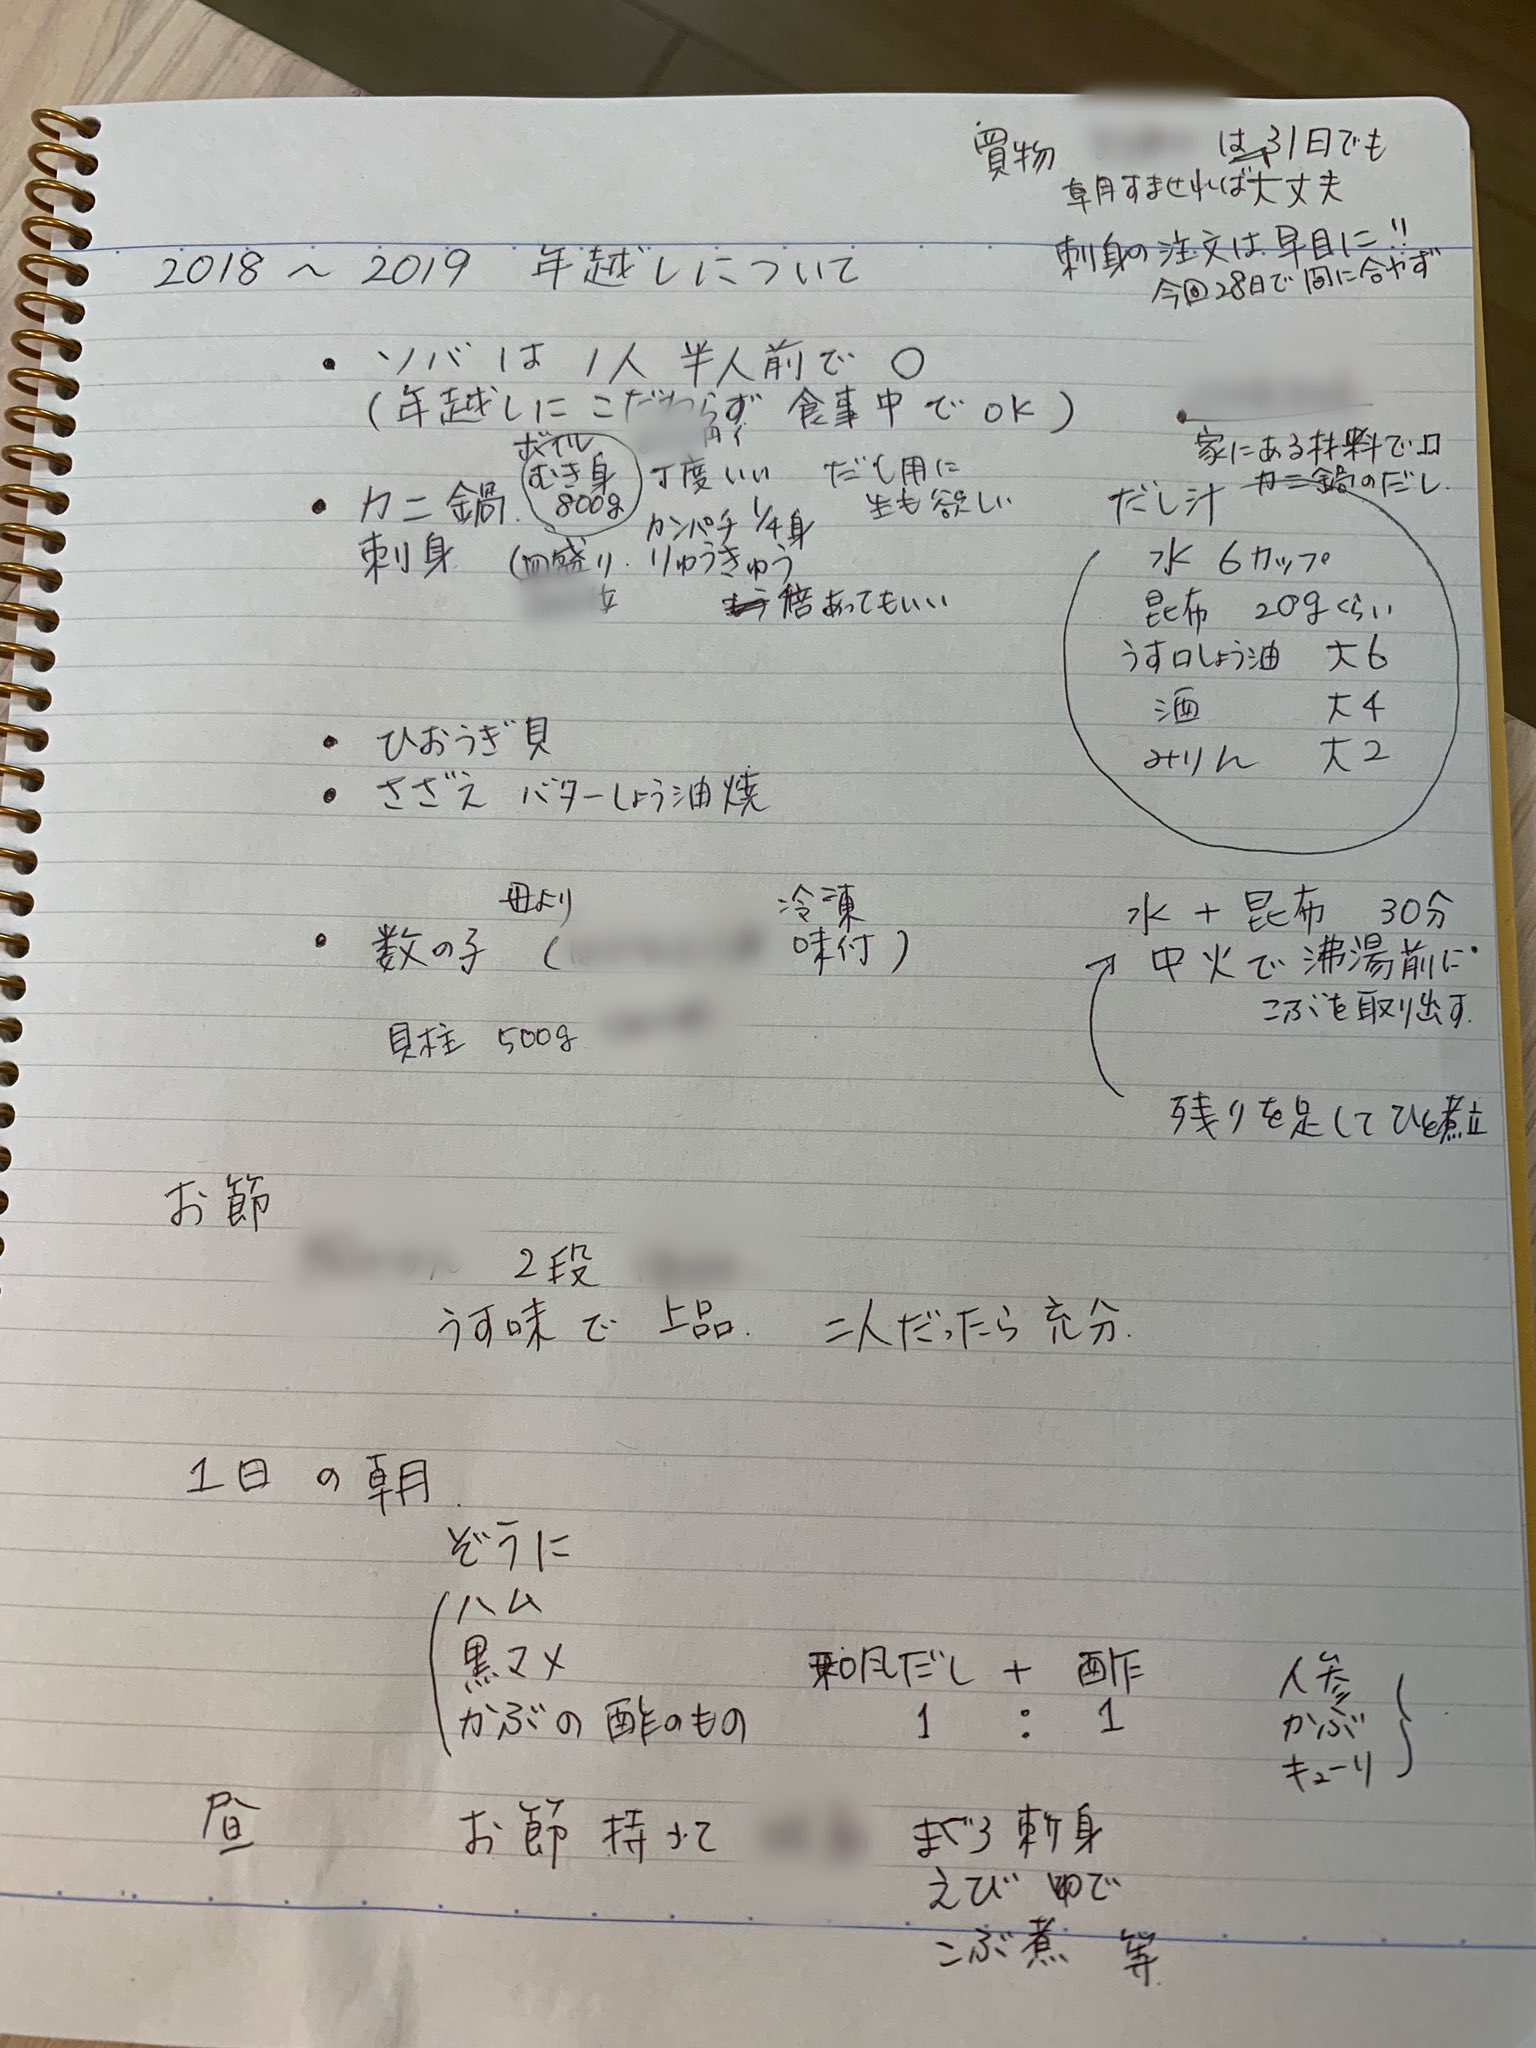 買物 は31日でも
朝すませれば大丈夫
刺身の注文は早目に!!
今回28日で間に合やず
2018 〜 2019 年越しについて
・ソバは1人半人前で○
(年越しにこだわらず食事中でOK)
・カニ鍋 ボイル
むき身
800g
丁度いい だし用に
生も欲しい
刺身 (皿盛り. カンパチ 1/4身
りゅうきゅう
倍あってもいい
・ひおうぎ貝
・さざえ バターしょう油焼
母より
・数の子 ( 冷凍
味付)
貝柱 500g
家にある材料で
カニ鍋のだし.
だし汁
水 6カップ
昆布 20gくらい
うす口しょう油 大6
酒 大4
みりん 大2
水 + 昆布 30分
中火で沸湯前に
こぶを取り出す.
残りを足してひと煮立
お節
2段
うす味で上品. 二人だったら充分.
1日の朝.
ぞうに
ハム
黒マメ
かぶの酢のもの
和風だし + 酢
1 : 1
人参
かぶ
キューリ
昼 お節 持って まぐろ刺身
えびゆで
こぶ煮 等